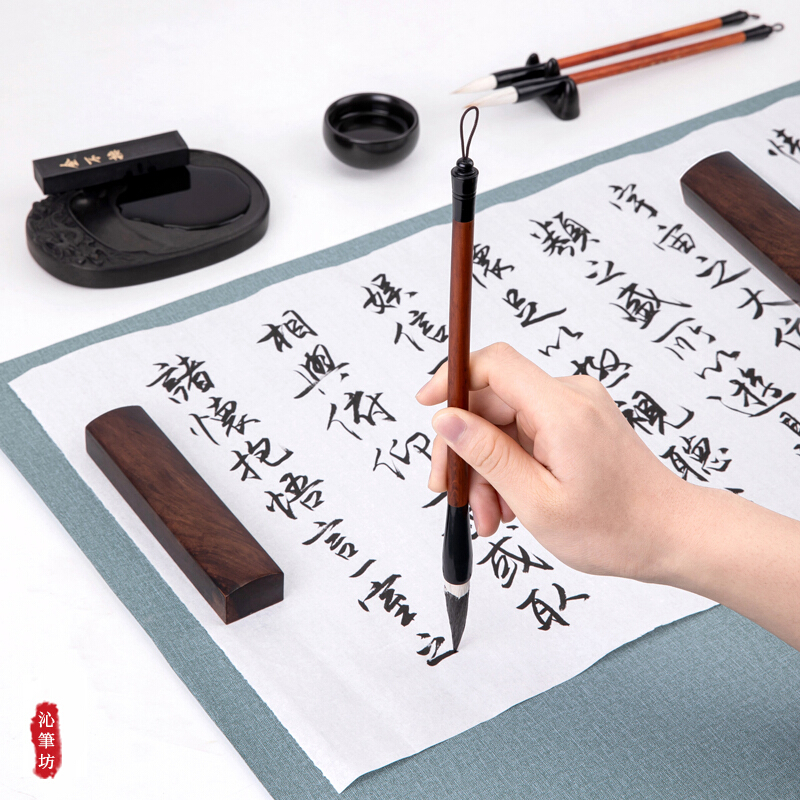 情
宇宙之大
類之盛所以遊
懷足以極視聽
娛信
相與俯仰
或取
諸懷抱悟言一室之
沁筆坊